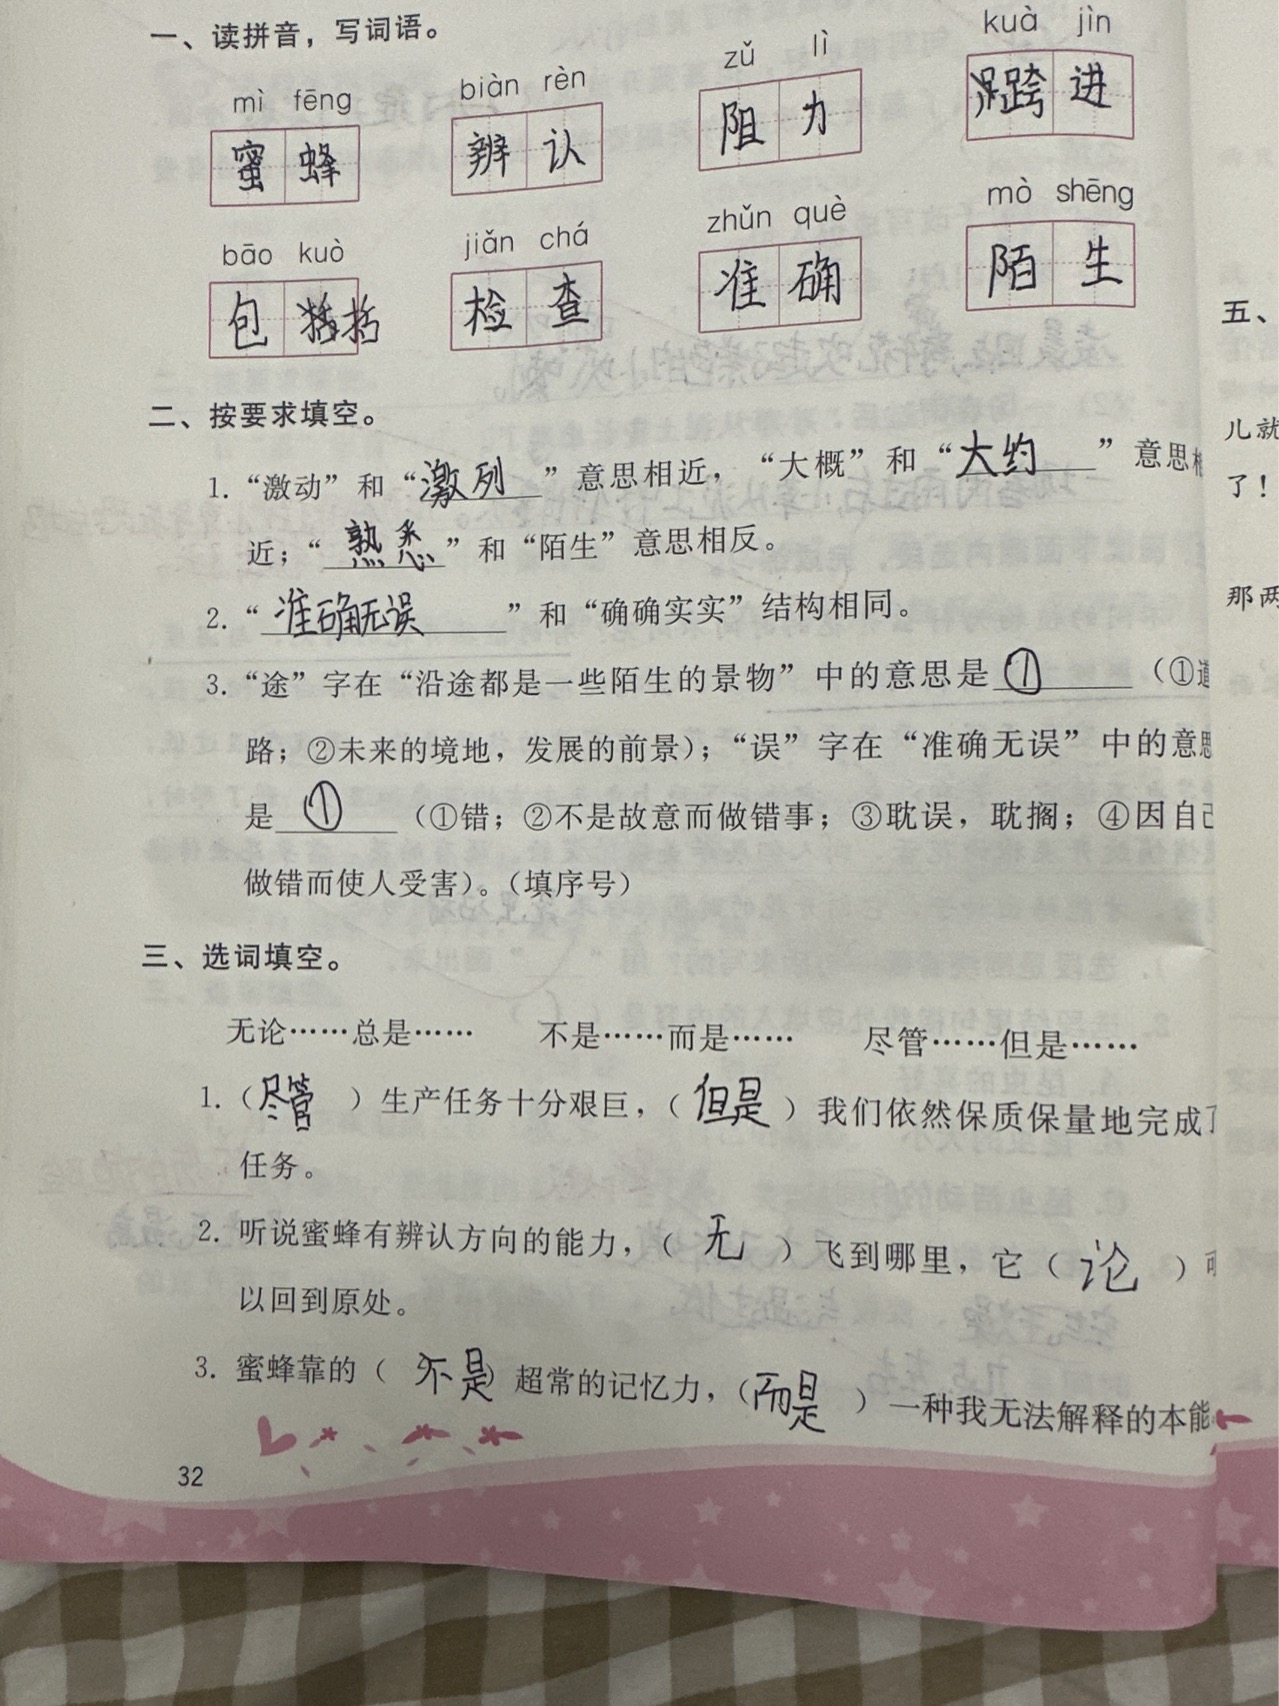 一、读拼音，写词语。
mì fēng biàn rèn zǔ lì kuà jìn
蜜蜂 辨认 阻力 跨进
bāo kuò jiǎn chá zhǔn què mò shēng
包括 检查 准确 陌生
二、按要求填空。
1. “激动”和“激列”意思相近，“大概”和“大约”意思相
近；“熟悉”和“陌生”意思相反。
2. “准确无误”和“确确实实”结构相同。
3. “途”字在“沿途都是一些陌生的景物”中的意思是①（①道
路；②未来的境地，发展的前景）；“误”字在“准确无误”中的意思
是①（①错；②不是故意而做错事；③耽误，耽搁；④因自己
做错而使人受害）。（填序号）
三、选词填空。
无论……总是…… 不是……而是…… 尽管……但是……
1.（尽管）生产任务十分艰巨，（但是）我们依然保质保量地完成了
任务。
2. 听说蜜蜂有辨认方向的能力，（无）飞到哪里，它（论）
以回到原处。
3. 蜜蜂靠的（不是）超常的记忆力，（而是）一种我无法解释的本能
32
五、
儿就
了！
那两